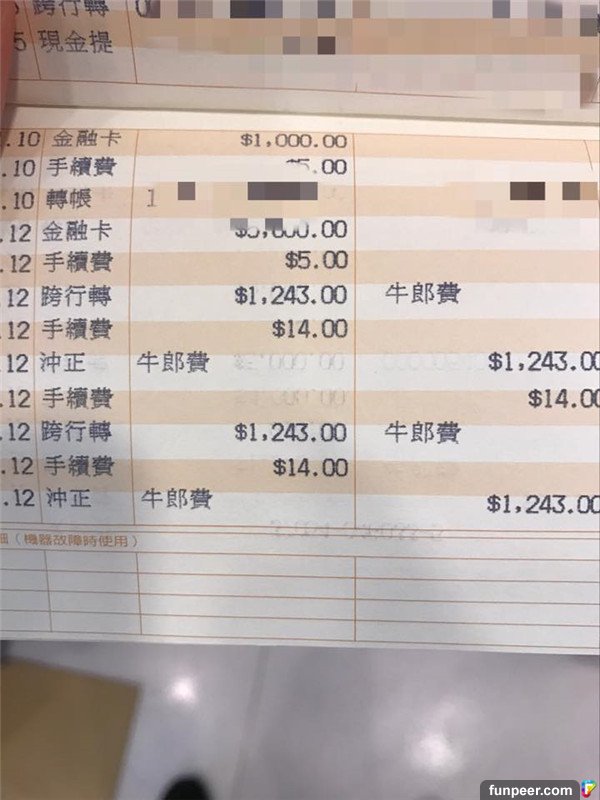 跨行轉
5 現金提
.10 金融卡 $1,000.00
.10 手續費 5.00
.10 轉帳 1
.12 金融卡 00
.12 手續費 $5.00
12 跨行轉 $1,243.00 牛郎費
12 手續費 $14.00
12 沖正 牛郎費 $1,243.00
.12 手續費 $14.00
.12 跨行轉 $1,243.00 牛郎費
.12 手續費 $14.00
.12 沖正 牛郎費 $1,243.00
(機器故障時使用)
funpeer.com